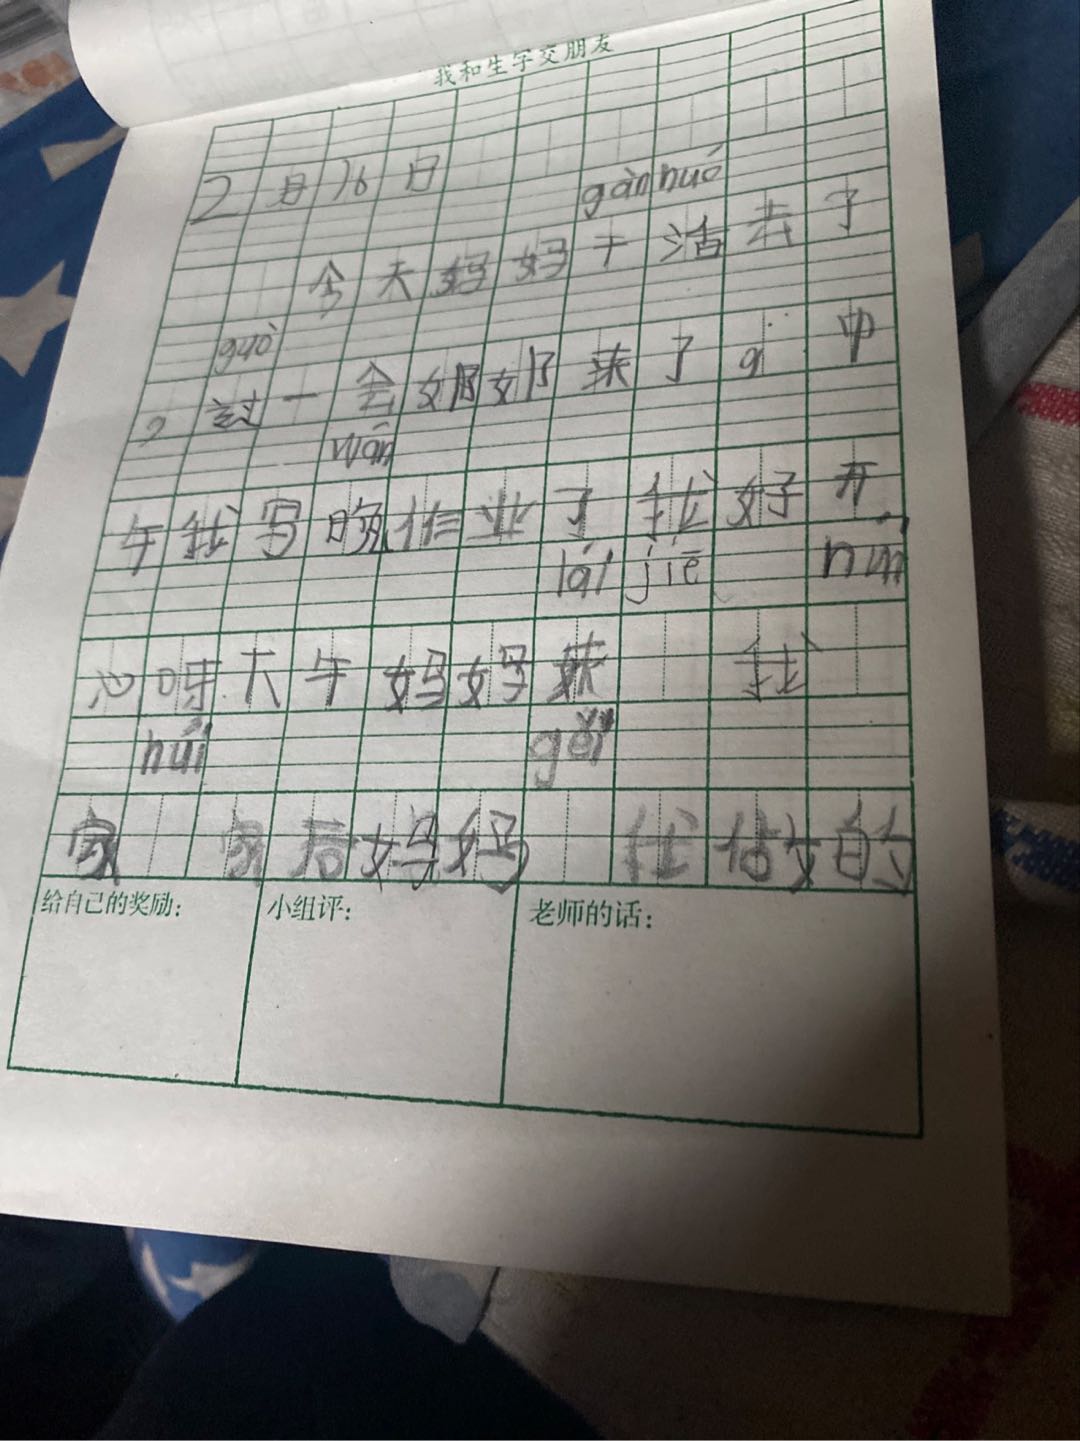 我和生字交朋友
2月16日
gàn huó
今天妈妈干活去了
guò
，过一会奶奶来了。中
wán
午我写晚作业了我好开
lái jiē
心呀下午妈妈来 我
huí gěi
家 家后妈妈 我 的
给自己的奖励：
小组评：
老师的话：